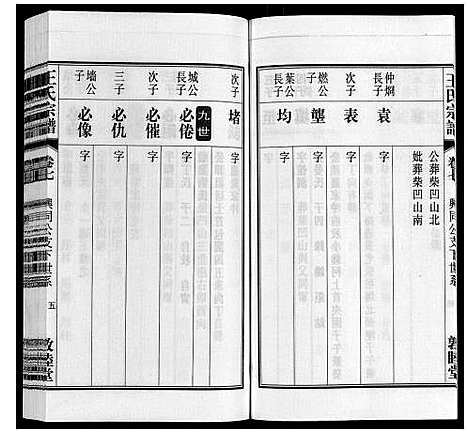 王氏宗譜
卷七
興同公支下世系
敦睦堂
公葬柴凹山北
妣葬柴凹山南
仲炯長子
袁
字
次子
表
字
燃公子
壟
字
葉公長子
均
字
次子
堵
字
九世
城公長子
必倦
字
次子
必催
字
三子
必仇
字
墻公子
必像
字
王氏宗譜
卷七
興同公支下世系
五
敦睦堂